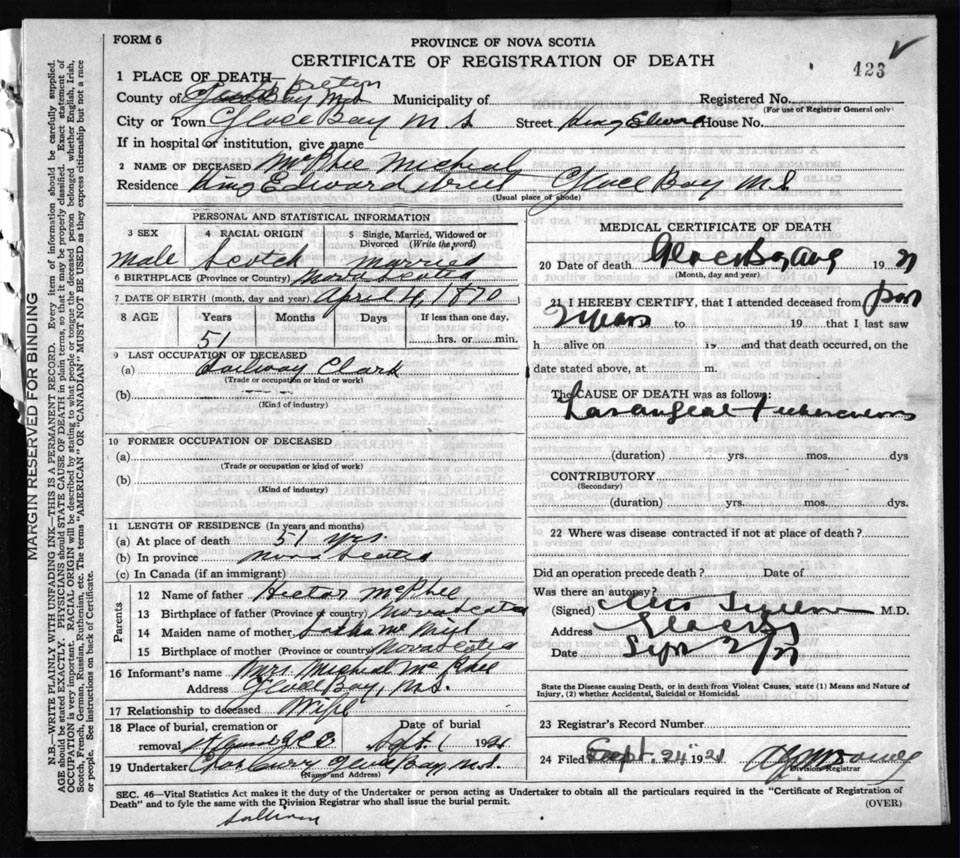 FORM 6
PROVINCE OF NOVA SCOTIA
CERTIFICATE OF REGISTRATION OF DEATH
423
1 PLACE OF DEATH— Breton
County of Municipality of Registered No.
(For use of Registrar General only)
City or Town Glace Bay N.S Street King Edward House No.
If in hospital or institution, give name
2 NAME OF DECEASED McPhee Micheal
Residence King Edward street Glace Bay N.S
(Usual place of abode)
PERSONAL AND STATISTICAL INFORMATION
3 SEX 4 RACIAL ORIGIN 5 Single, Married, Widowed or Divorced (Write the word)
Male Scotch married
6 BIRTHPLACE (Province or Country) Nova Scotia
7 DATE OF BIRTH (month, day and year) April 4, 1870
8 AGE Years Months Days If less than one day,
51 hrs. or min.
9 LAST OCCUPATION OF DECEASED
(a) Railway Clark
(Trade or occupation or kind or work)
(b)
(Kind of industry)
10 FORMER OCCUPATION OF DECEASED
(a)
(Trade or occupation or kind of work)
(b)
(Kind of industry)
11 LENGTH OF RESIDENCE (In years and months)
(a) At place of death 51 yrs.
(b) In province Nova Scotia
(c) In Canada (if an immigrant)
Parents
12 Name of father Hector McPhee
13 Birthplace of father (Province or country) Nova Scotia
14 Maiden name of mother
15 Birthplace of mother (Province or country) Nova Scotia
16 Informant's name Mrs Micheal McPhee
Address Glace Bay, N.S.
17 Relationship to deceased Wife
18 Place of burial, cremation or Date of burial
removal Sept. 1 1921
19 Undertaker Glace Bay, N.S.
(Name and Address)
MEDICAL CERTIFICATE OF DEATH
20 Date of death Aug 19 21
(Month, day and year)
21 I HEREBY CERTIFY, that I attended deceased from past
2 years to 19 that I last saw
h alive on 19 and that death occurred, on the
date stated above, at m.
The CAUSE OF DEATH was as follows:
Larangeal Tuberculosis
(duration) yrs. mos. dys
CONTRIBUTORY
(Secondary)
(duration) yrs. mos. dys.
22 Where was disease contracted if not at place of death?
Did an operation precede death? Date of
Was there an autopsy?
(Signed) M.D.
Address Glace Bay
Date Sept 2/21
State the Disease causing Death, or in death from Violent Causes, state (1) Means and Nature of
Injury, (2) whether Accidental, Suicidal or Homicidal.
23 Registrar's Record Number
24 Filed Sept. 24" 1921
Division Registrar
SEC. 46—Vital Statistics Act makes it the duty of the Undertaker or person acting as Undertaker to obtain all the particulars required in the "Certificate of Registration of
Death" and to fyle the same with the Division Registrar who shall issue the burial permit. (OVER)
Sullivan
MARGIN RESERVED FOR BINDING
N.B.—WRITE PLAINLY WITH UNFADING INK—THIS IS A PERMANENT RECORD. Every item of information should be carefully supplied.
AGE should be stated EXACTLY. PHYSICIANS should STATE CAUSE OF DEATH in plain terms, so that it may be properly classified. Exact statement of
OCCUPATION is very important. RACIAL ORIGIN will be described by stating to what people or tongue the deceased person belonged whether English, Irish,
Scotch, French, German, Russian, Ruthenian, etc. The terms "AMERICAN" OR "CANADIAN" MUST NOT BE USED as they express citizenship but not a race
or people. See instructions on back of Certificate.